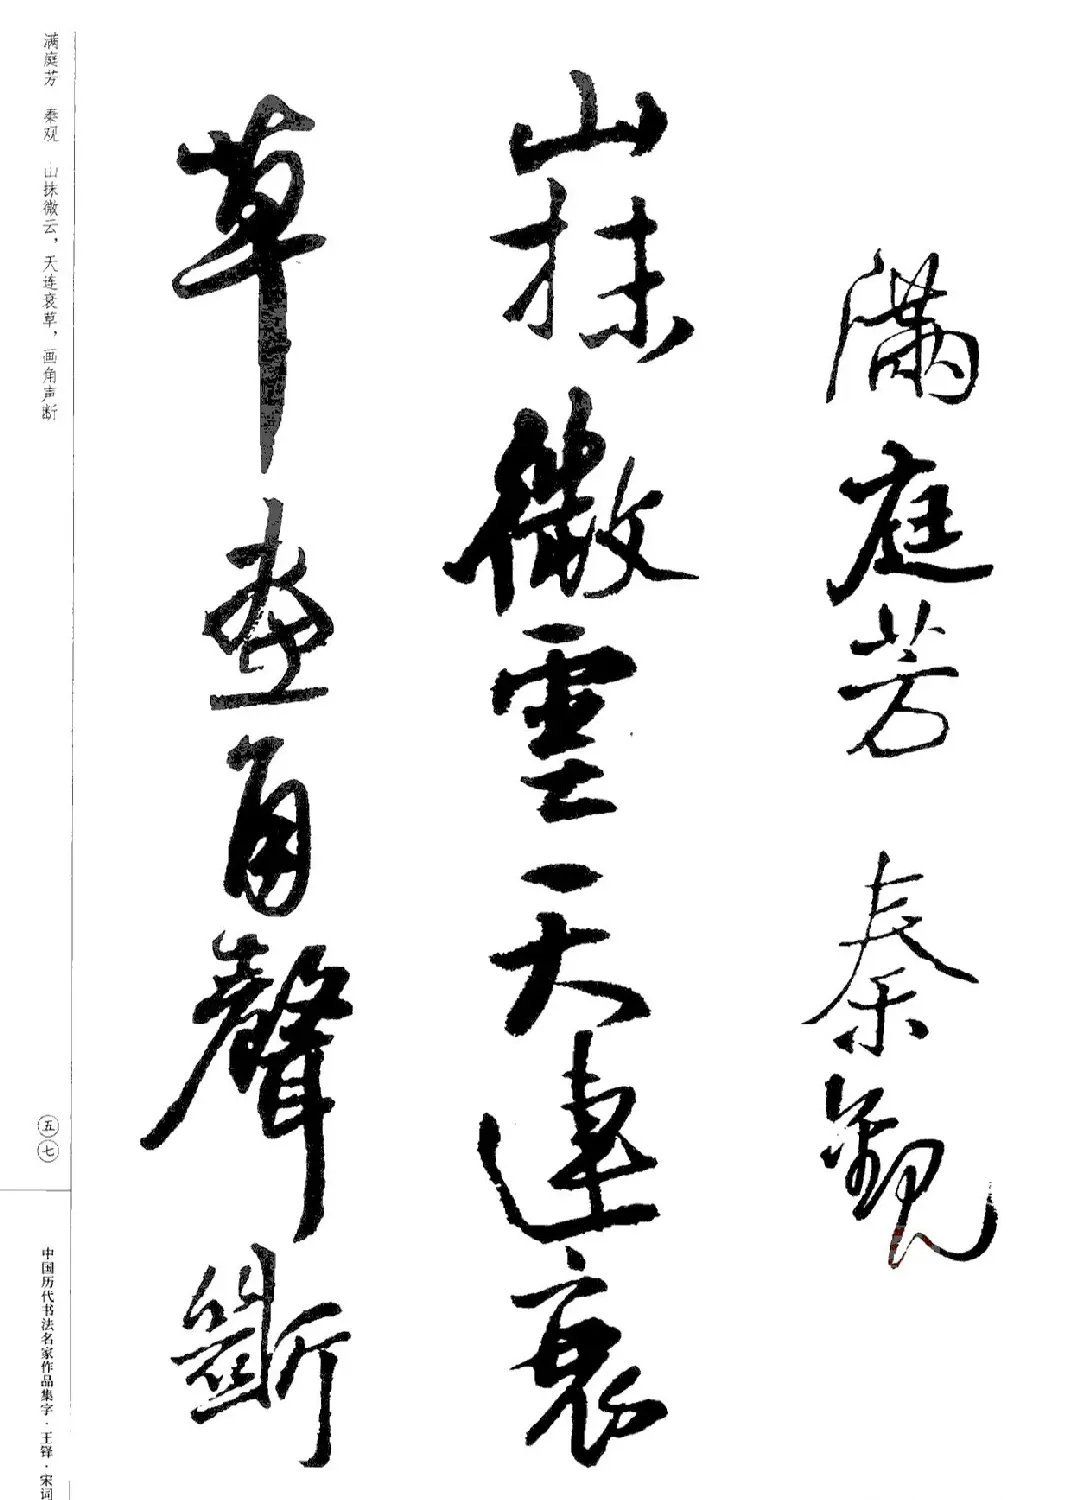 滿庭芳 秦觀
山抹微雲天連衰
草畫角聲斷
满庭芳 秦观 山抹微云，天连衰草，画角声断
五七
中国历代书法名家作品集字·王铎·宋词